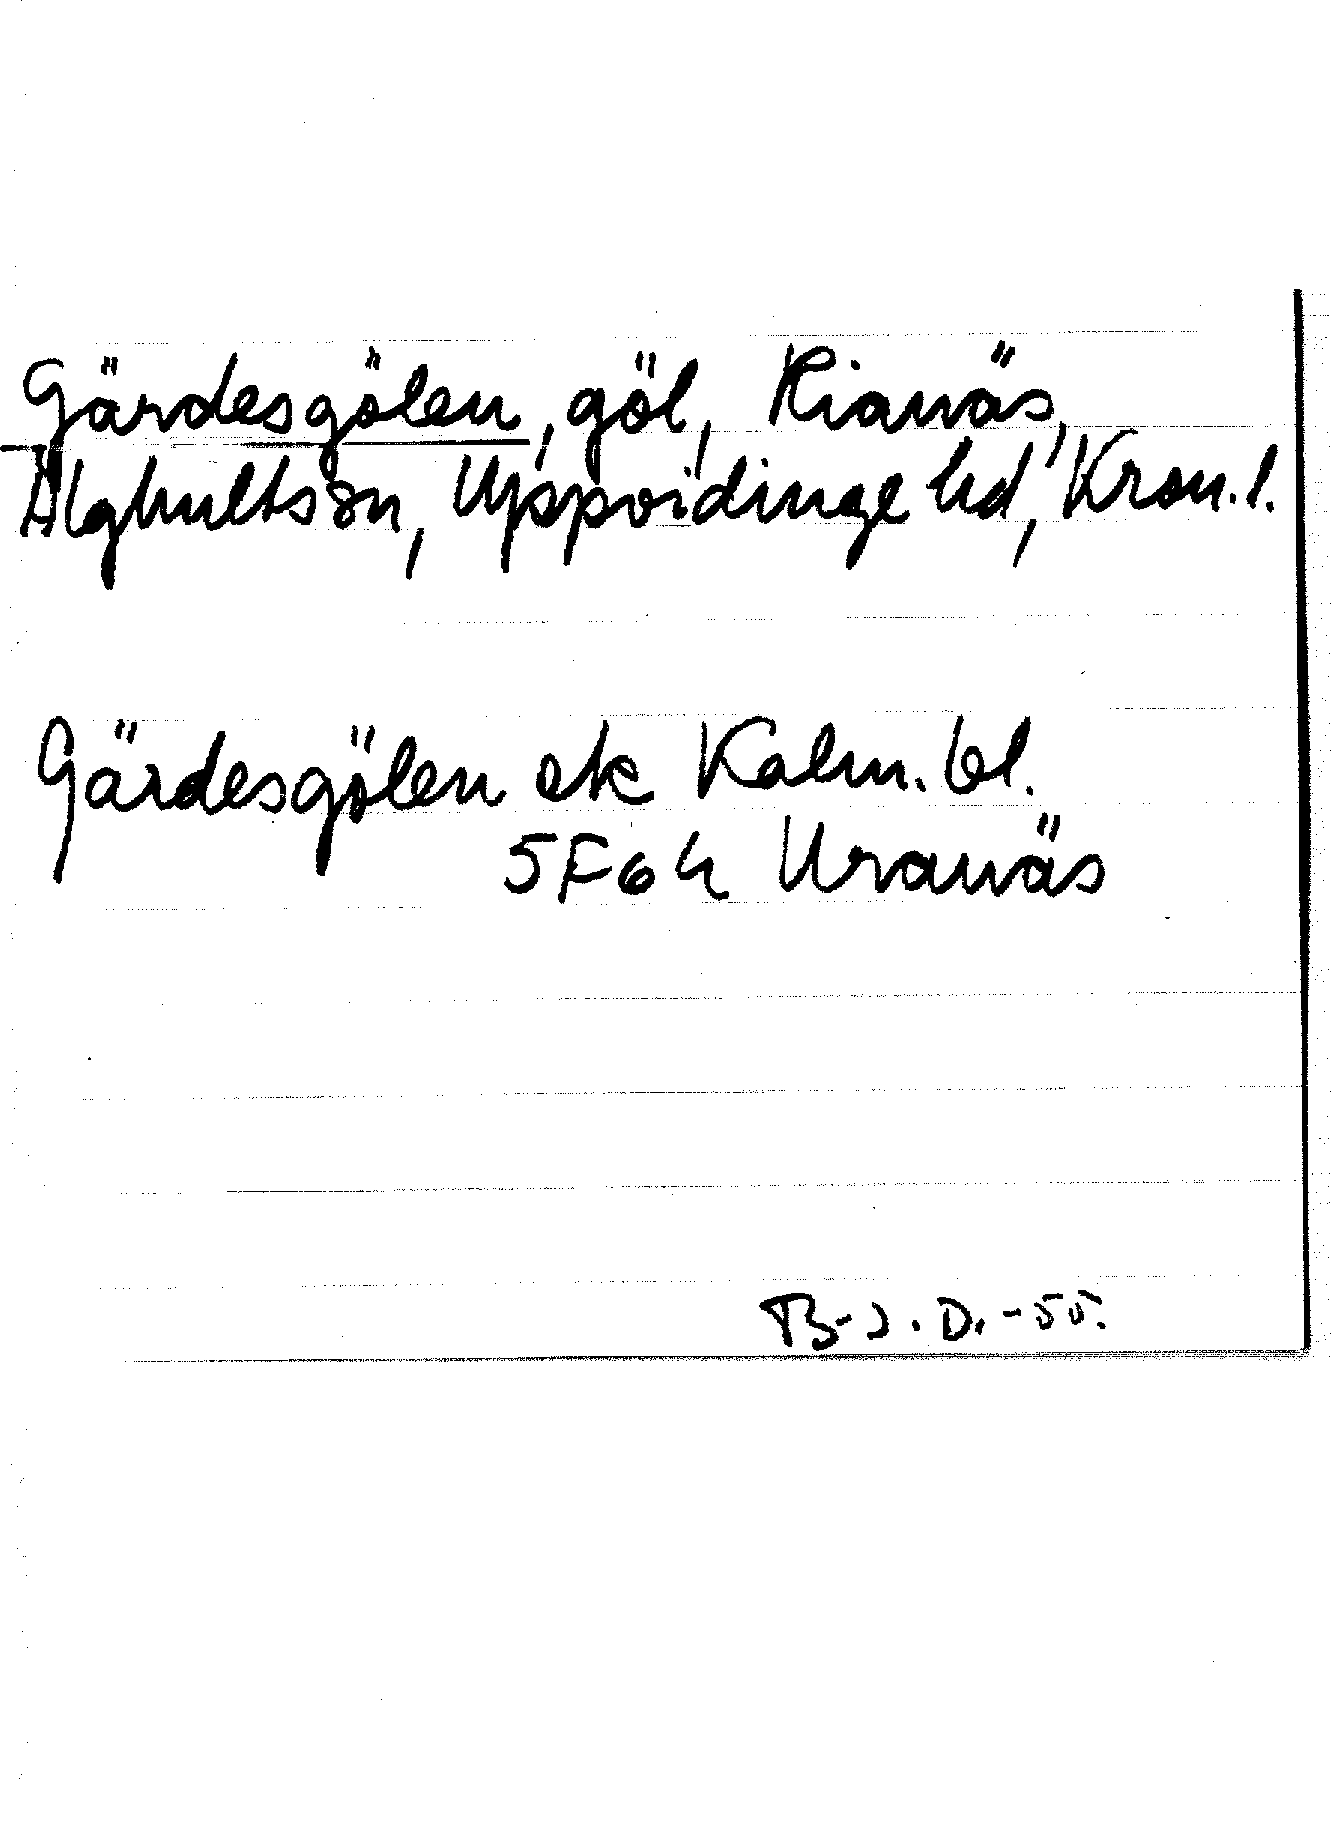 Gärdesgölen, göl, Rianäs,
Älghults sn, Uppvidinge hd, Kron. l.
Gärdesgölen ek Kalm. bl.
5F6h Uranäs
B-J. D. -55.